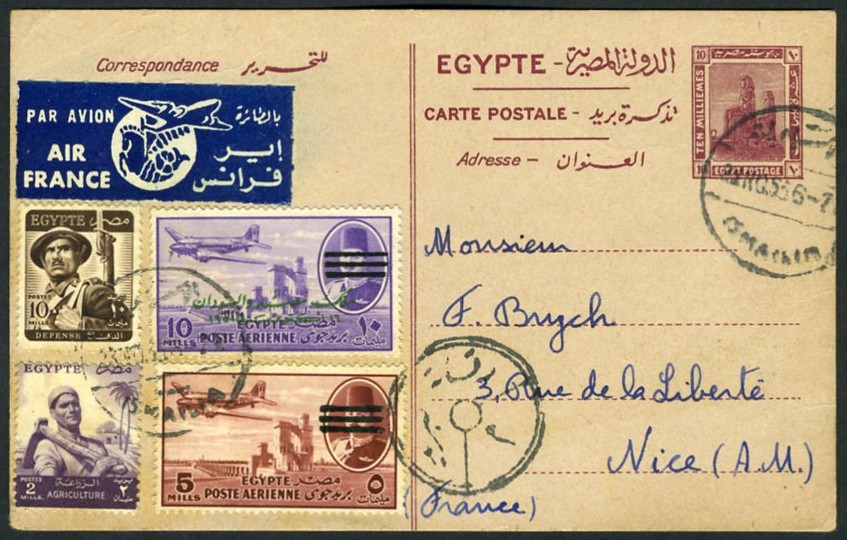 Correspondance للتحرير
PAR AVION بالطائرة
AIR FRANCE
إير فرانس
EGYPTE مصر
POSTES
10 ١٠
MILLS. مليمات
DEFENSE الدفاع
EGYPTE مصر
10 ١٠
MILLS مليمات
POSTE AERIENNE بريد جوى
EGYPTE مصر
POSTES
2 ٢
MILLS.
AGRICULTURE الزراعة
EGYPTE مصر
5 ٥
MILLS مليمات
POSTE AÉRIENNE بريد جوى
EGYPTE - الدولة المصرية
CARTE POSTALE - تذكرة بريد
Adresse - العنوان
10 ١٠
TEN MILLIEMES
10 ١٠
EGYPT POSTAGE
Monsieur
F. Brych
3, Rue de la Liberté
Nice (A.M.)
(France)